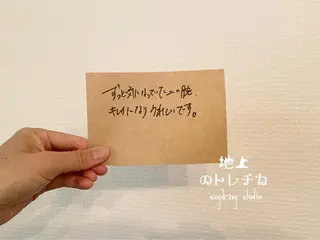 ずっと気になっていた二の腕、
キレイになりうれしいです。
地上
のトレチカ